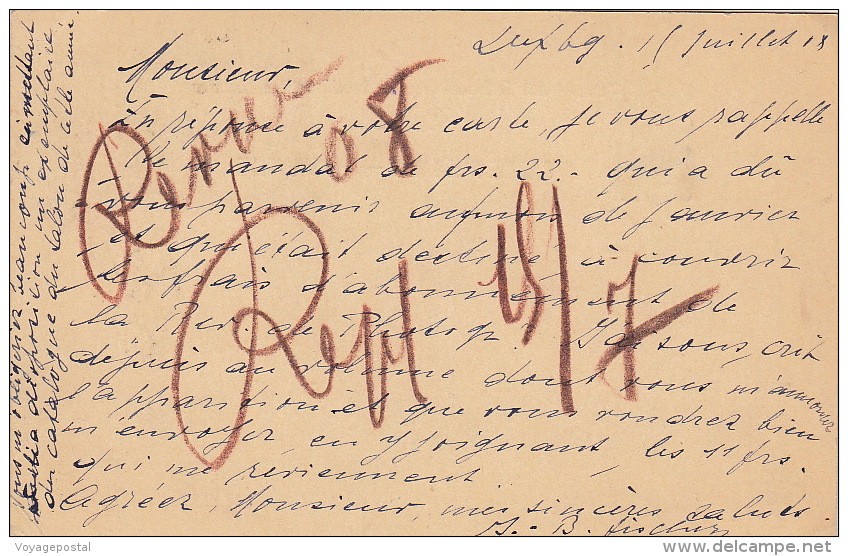 Luxbg. 15 Juillet 18
Monsieur,
En réponse à votre carte, je vous rappelle
le mandat de frs. 22.- qui a dû
vous parvenir au mois de Janvier
et qui était destiné à couvrir
les frais d'abonnement de
la Rev. de Photogr. J'ai souscrit
depuis au volume dont vous m'annoncez
l'apparition et que vous voudrez bien
m'envoyer en y joignant les 11 frs.
qui me reviennent
Agréez, Monsieur, mes sincères saluts.
J.-B. Fischer
Vous m'obligeriez beaucoup en mettant
à disposition un exemplaire
du catalogue du Salon de cette année.
08
Rép 15/7
Voyagepostal
delcampe.net